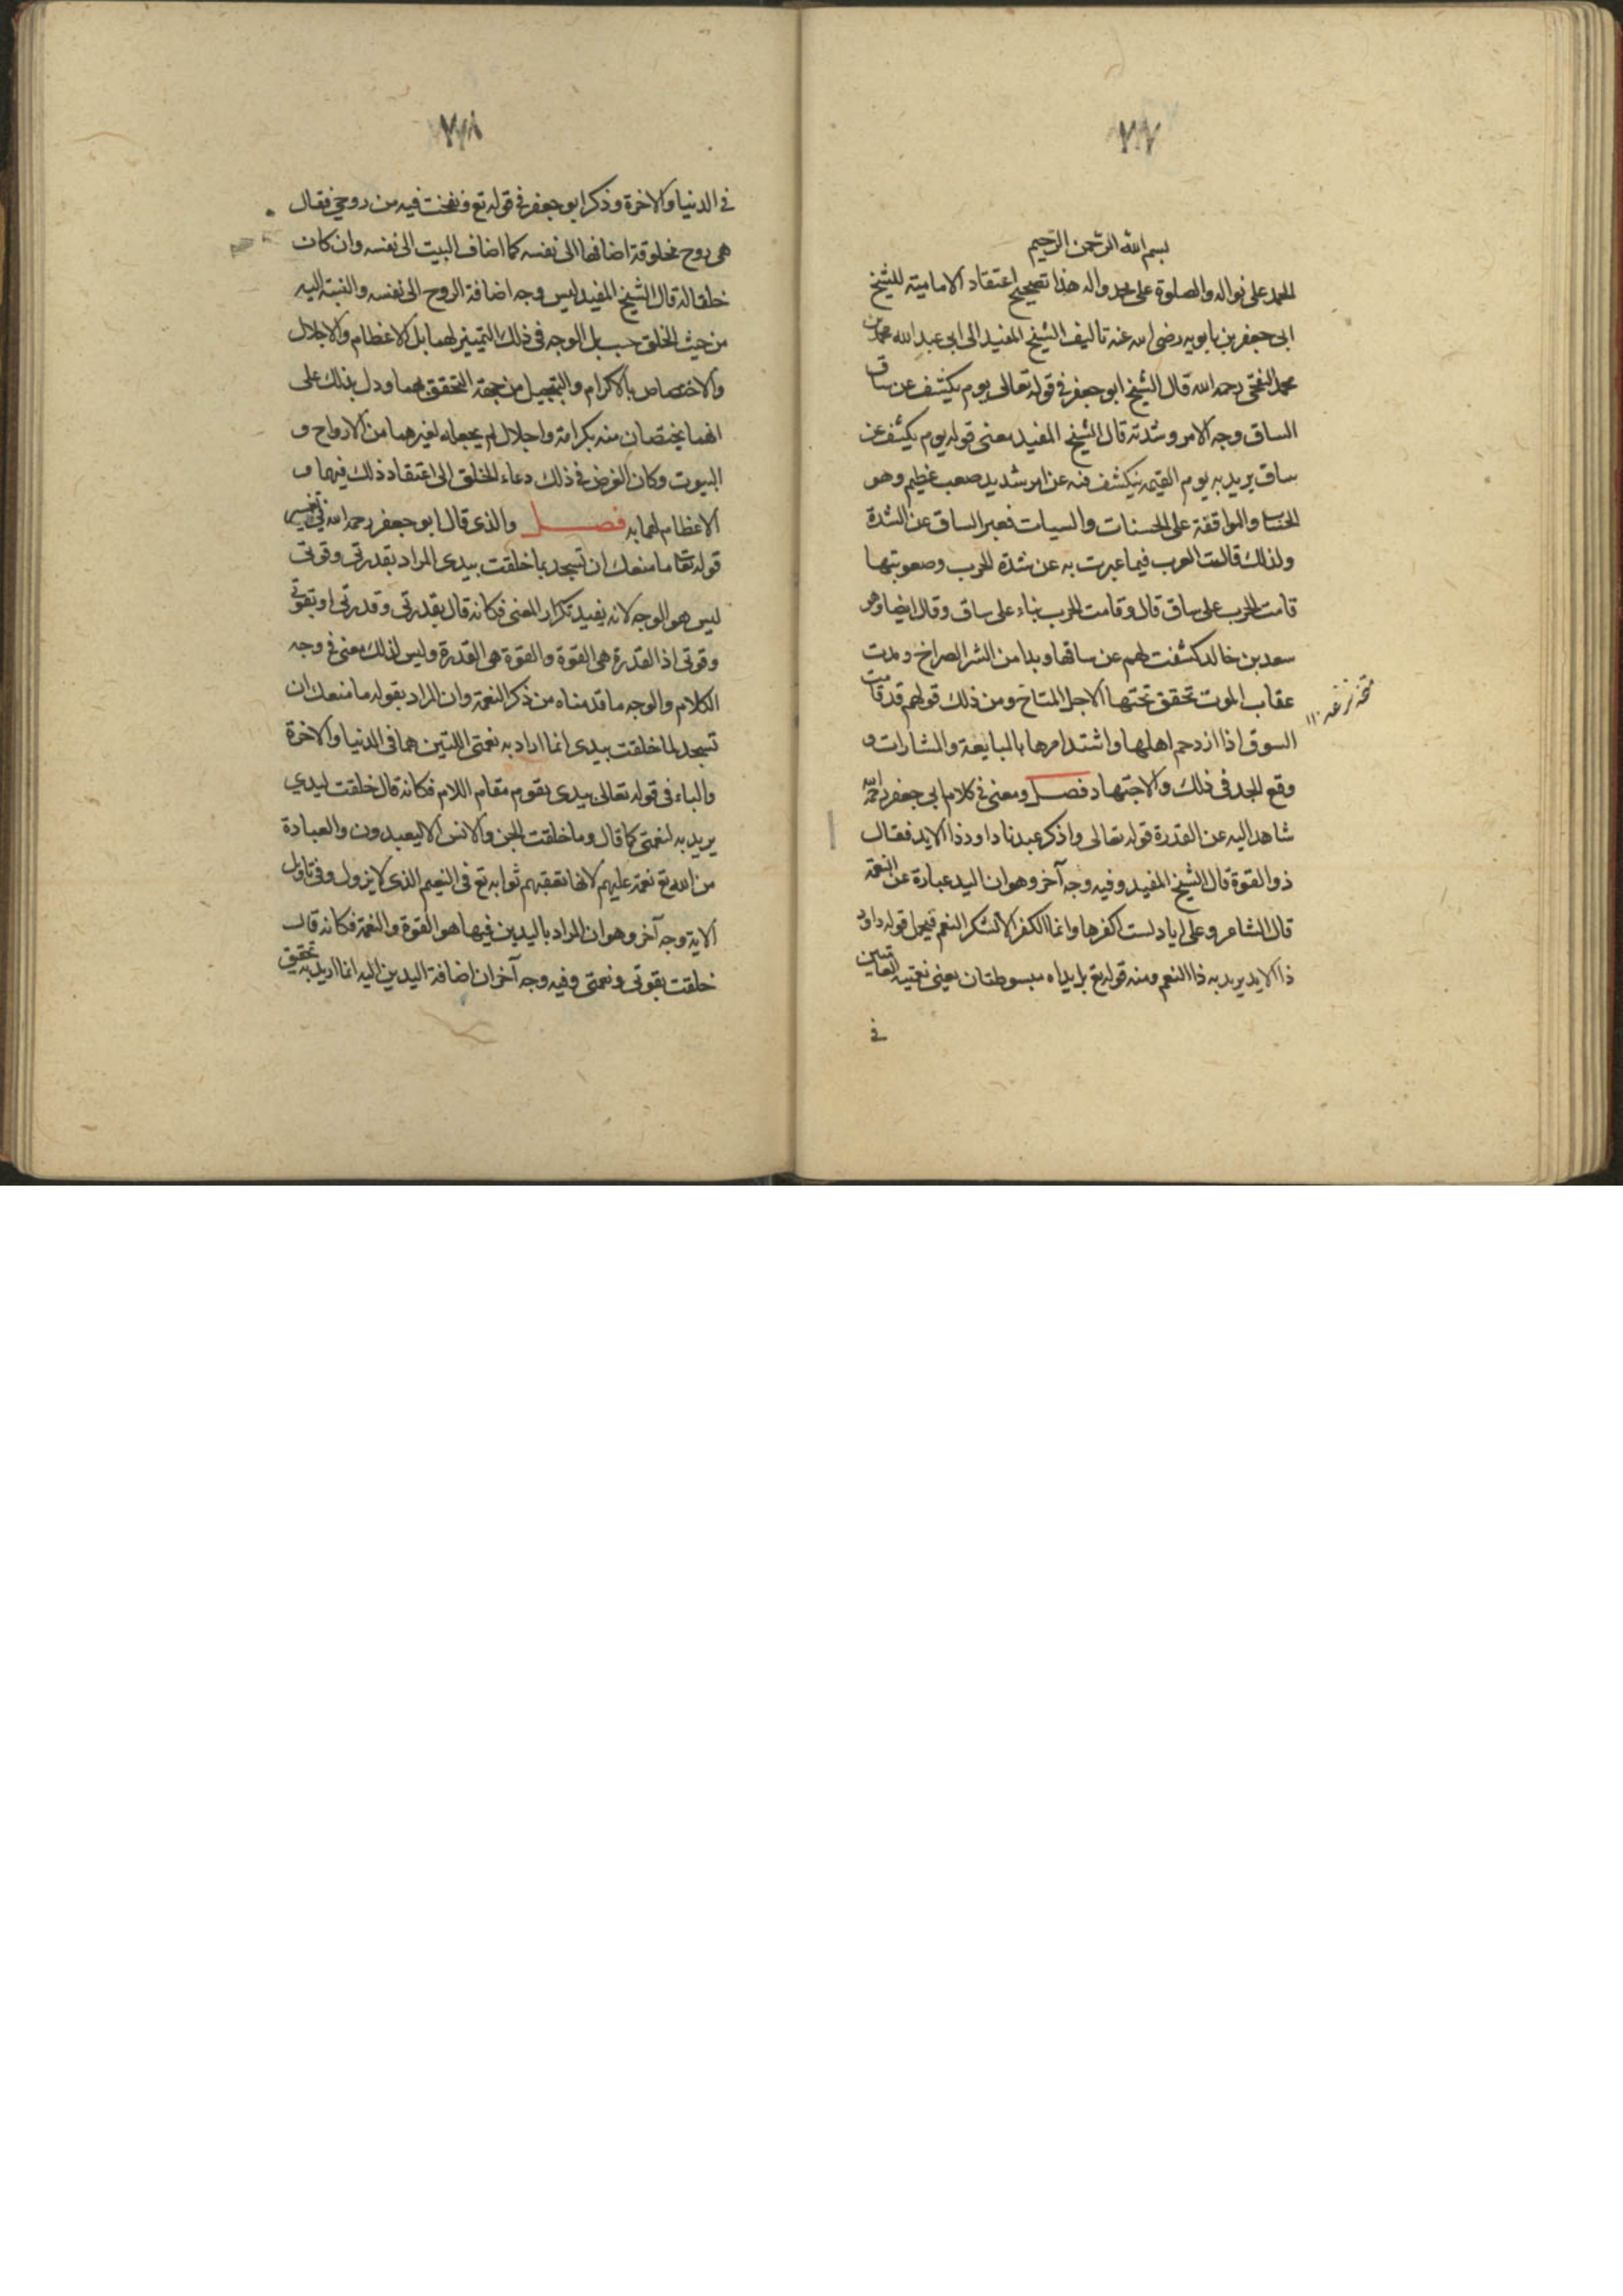 ٢٧
بسم الله الرحمن الرحيم
الحمد على نواله والصلوة على محمد واله هذا تصحيح اعتقاد الامامية للشيخ
ابى جعفر بن بابويه رضى الله عنه تاليف الشيخ المفيد ابى عبد الله محمد بن
محمد رحمه الله قال الشيخ ابو جعفر فى قوله تعالى يوم يكشف عن ساق
الساق وجه الامر وشدته قال الشيخ المفيد معنى قوله يوم يكشف عن
ساق يريد به يوم القيمة ينكشف فيه عن امر شديد صعب عظيم وهو
الحساب والمواقفة على الحسنات والسيات فعبر الساق عن الشدة
ولذلك قالت العرب فيما عبرت به عن شدة الحرب وصعوبتها
قامت الحرب على ساق قال وقامت الحرب بناء على ساق وقال ايضا وهو
سعد بن خالد كشفت لهم عن ساقها وبدا من الشر الصراخ وبدت
عقاب الموت تخفق تحتها الاجل المتاح ومن ذلك قولهم قد قامت
السوق اذا ازدحم اهلها واشتد امرها بالمبايعة والمشارات و
وقع الجد فى ذلك والاجتهاد فصل ومعنى فى كلام ابى جعفر رحمه الله
شاهد اليد عن القدرة قوله تعالى واذكر عبدنا داود ذا الايد فقال
ذو القوة قال الشيخ المفيد وفيه وجه آخر وهو ان اليد عبارة عن النعمة
قال الشاعر وعلى اياد لست اكفرها وانما الكفر الا تشكر النعم فيحمل قوله داود
ذا الايد يريد به ذا النعم ومنه قوله تع بل يداه مبسوطتان يعنى نعمتيه العامتين
فى
٢٨
فى الدنيا والاخرة وذكر ابو جعفر فى قوله تع ونفخت فيه من روحى فقال
هى روح مخلوقة اضافها الى نفسه كما اضاف البيت الى نفسه وان كان
خلقا له قال الشيخ المفيد ليس وجه اضافة الروح الى نفسه والنسبة اليه
من حيث الخلق حسب بل الوجه فى ذلك التمييز لهما بل الاعظام والاجلال
والاختصاص بالاكرام والتبجيل من جهة التحقق بهما ودل بذلك على
انهما يختصان منه بكرامة واجلال لم يجعله لغيرهما من الارواح و
البيوت وكان الغرض فى ذلك دعاء الخلق الى اعتقاد ذلك فيهما و
الاعظام لهما به فصل والذى قال ابو جعفر رحمه الله فى تفسير
قوله تعا ما منعك ان تسجد بما خلقت بيدى المراد بقدرتى وقوتى
ليس هو الوجه لانه يفيد تكرار المعنى فكانه قال بقدرتى وقدرتى او بقوتى
وقوتى اذ القدرة هى القوة والقوة هى القدرة وليس لذلك معنى فى وجه
الكلام والوجه ما قدمناه من ذكر النعمة وان المراد بقوله ما منعك ان
تسجد لما خلقت بيدى انما اراد به نعمتى اللتين هما فى الدنيا والاخرة
والباء فى قوله تعالى بيدى يقوم مقام اللام فكانه قال خلقت ليدي
يريد به لنعمتى كما قال وما خلقت الجن والانس الا ليعبدون والعبادة
من الله تع نعمة عليهم لانها تعقبهم ثوابه تع فى النعيم الذى لا يزول وفى تاويل
الاية وجه آخر وهو ان المراد باليدين فيها هو القوة والنعمة فكانه قال
خلقت بقوتى ونعمتى وفيه وجه آخر ان اضافة اليدين اليه انما اريد به تحقيق